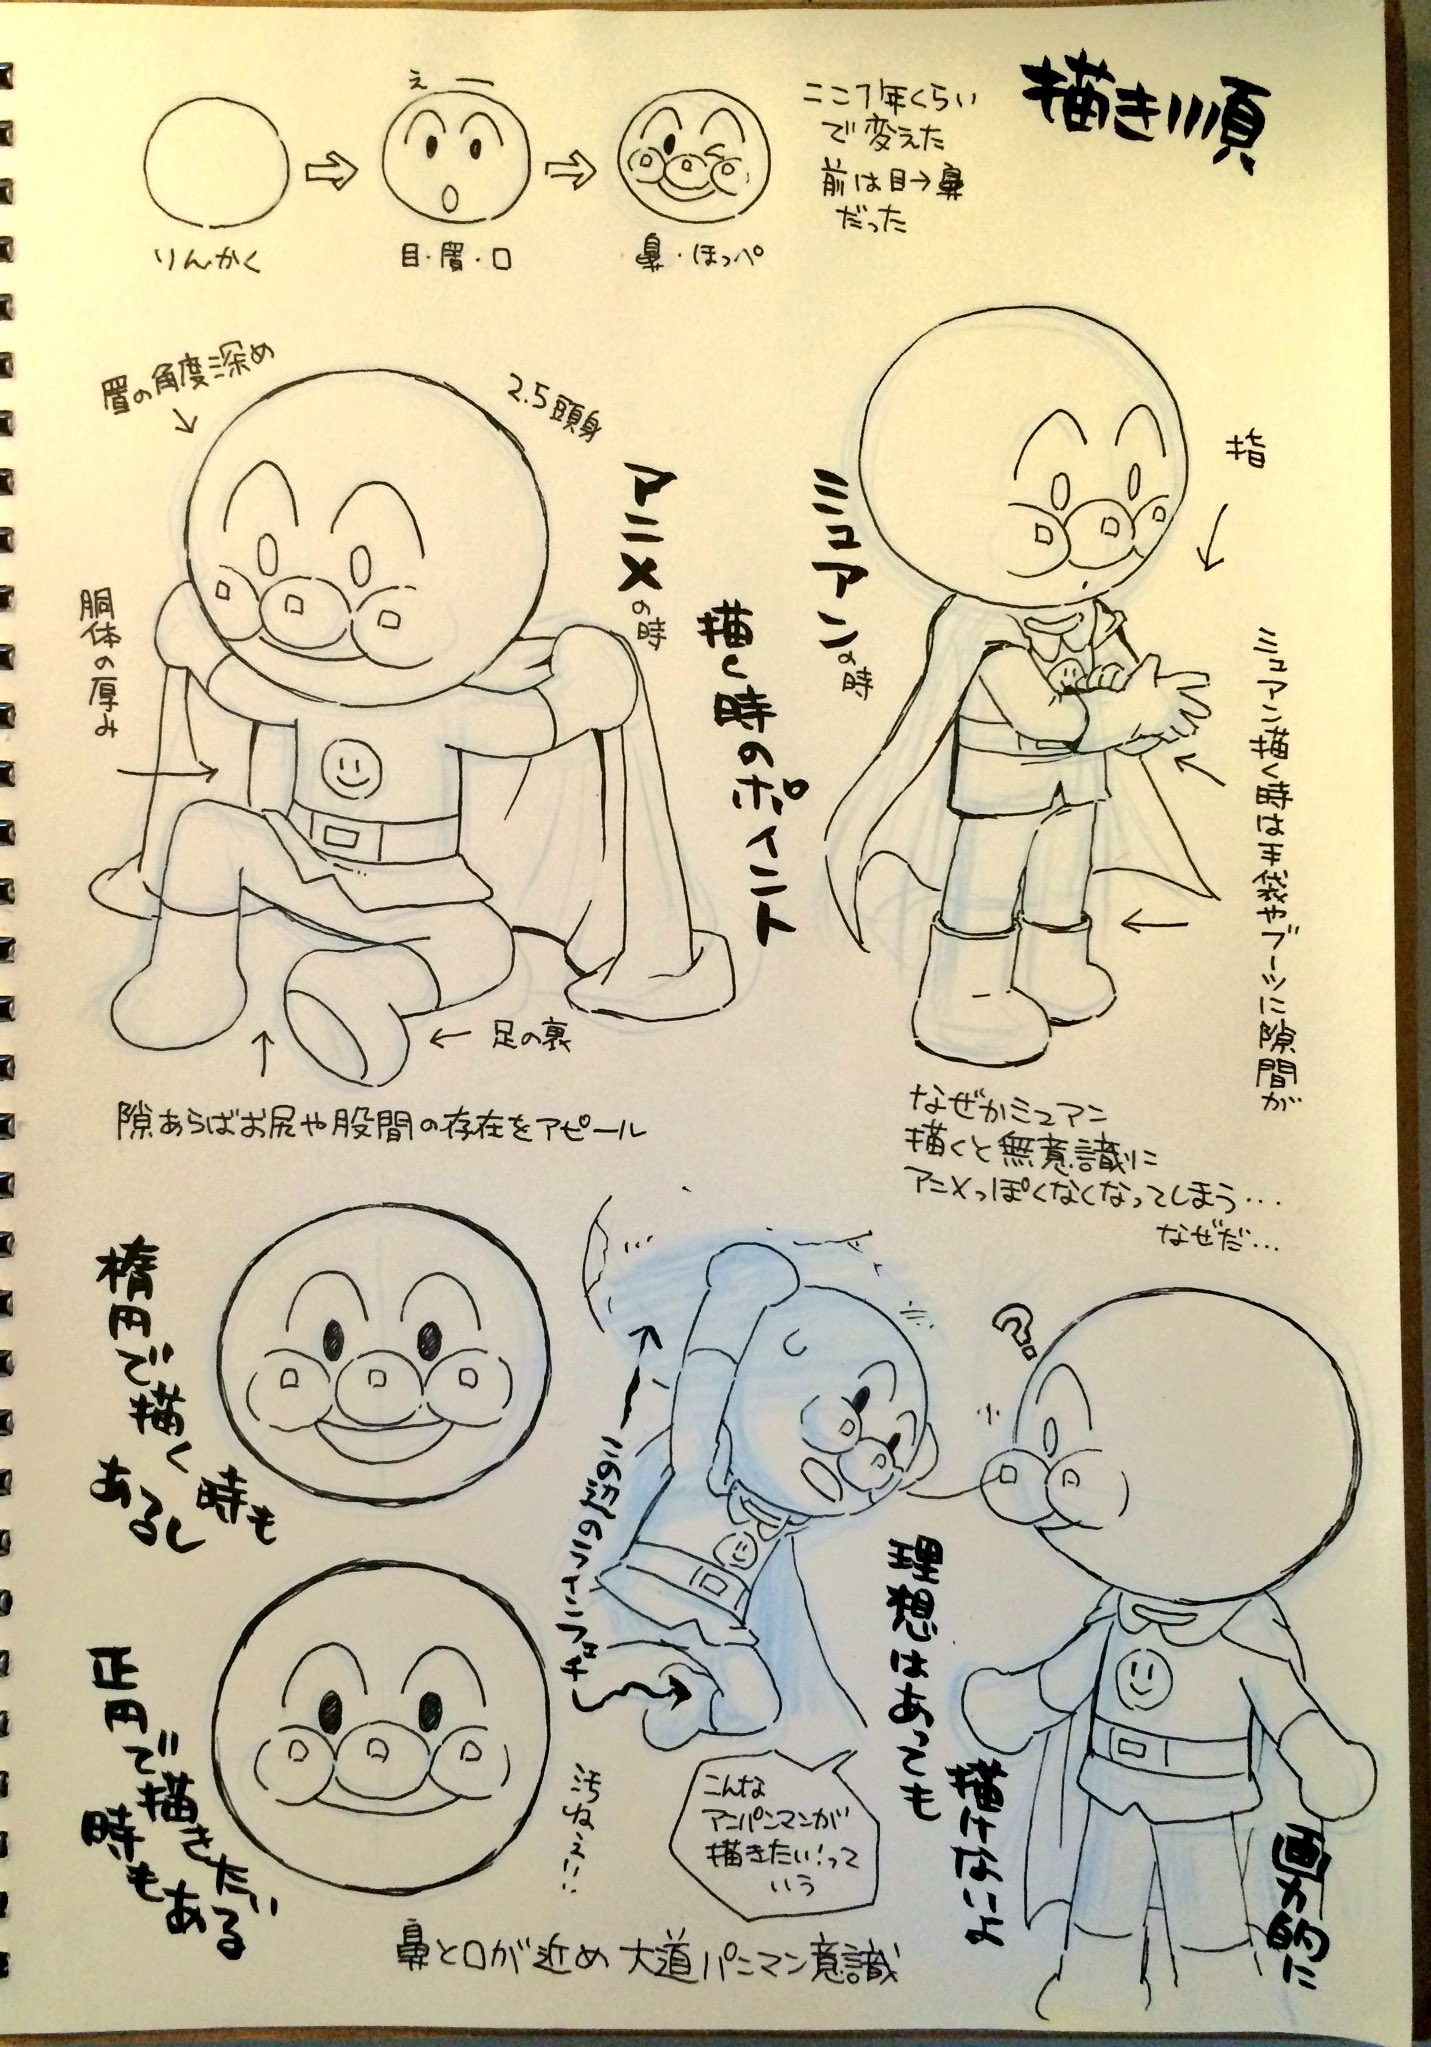 描き順
えー
ここ1年くらい
で変えた
前は目→鼻
だった
りんかく
目・眉・口
鼻・ほっぺ
眉の角度深め
2.5頭身
アニメの時
描く時のポイント
ミュアンの時
指
胴体の厚み
ミュアン描く時は手袋やブーツに隙間が
足の裏
隙あらばお尻や股間の存在をアピール
なぜかミュアン
描くと無意識に
アニメっぽくなくなってしまう…
なぜだ…
楕円で描く時も
あるし
正円で描きたい
時もある
鼻と口が近め 大道パンマン意識
汚ねぇ
こんな
アンパンマンが
描きたい!って
いう
理想はあっても
描けないよ
画力的に
?